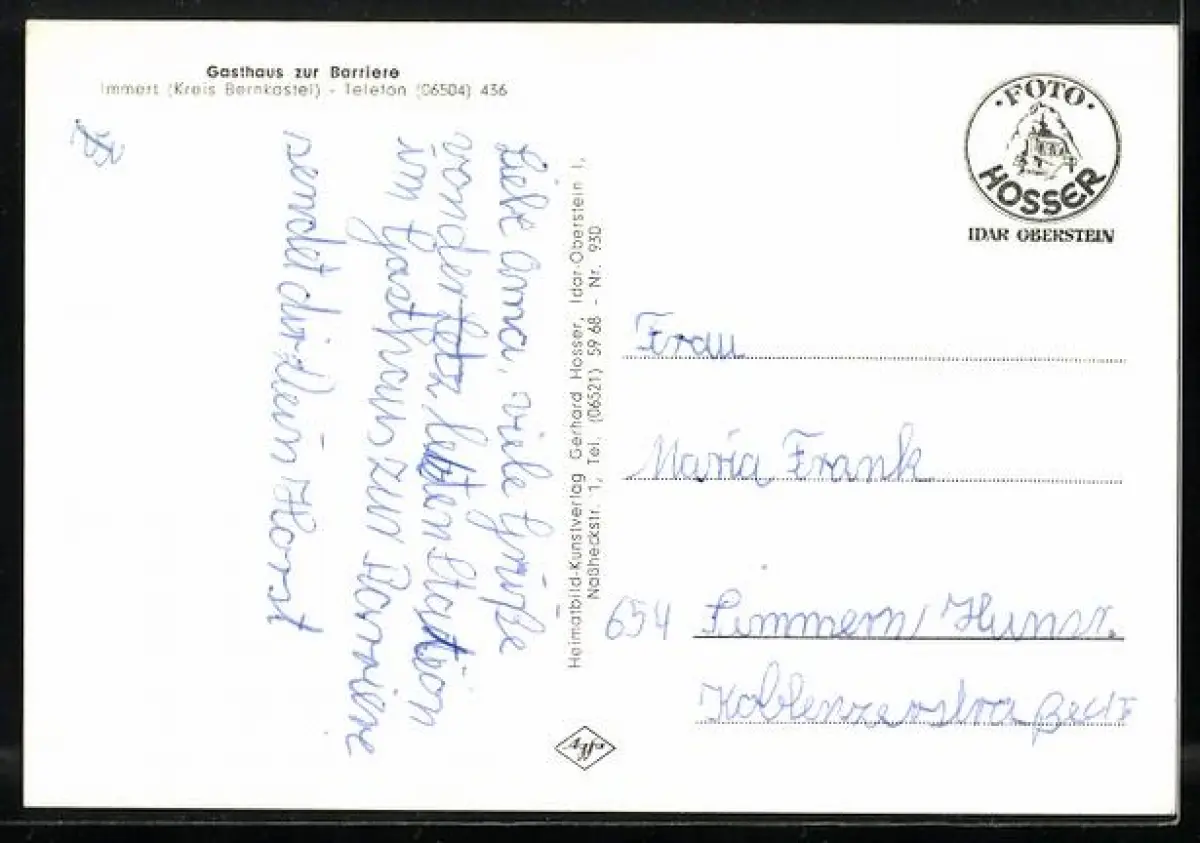 Gasthaus zur Barriere
Immert (Kreis Bernkastel) - Telefon (06504) 436
Liebe Oma, viele Grüße
von der letz letzten Station
im Gasthaus zur Barriere
sendet dir Dein Horst
Heimatbild-Kunstverlag Gerhard Hosser, Idar-Oberstein 1,
Naßheckstr. 1, Tel. (06521) 59 68 - Nr. 930
· FOTO ·
HOSSER
IDAR OBERSTEIN
Frau
Maria Frank
654 Simmern/Hunsr.
Koblenzerstraße
Agfa